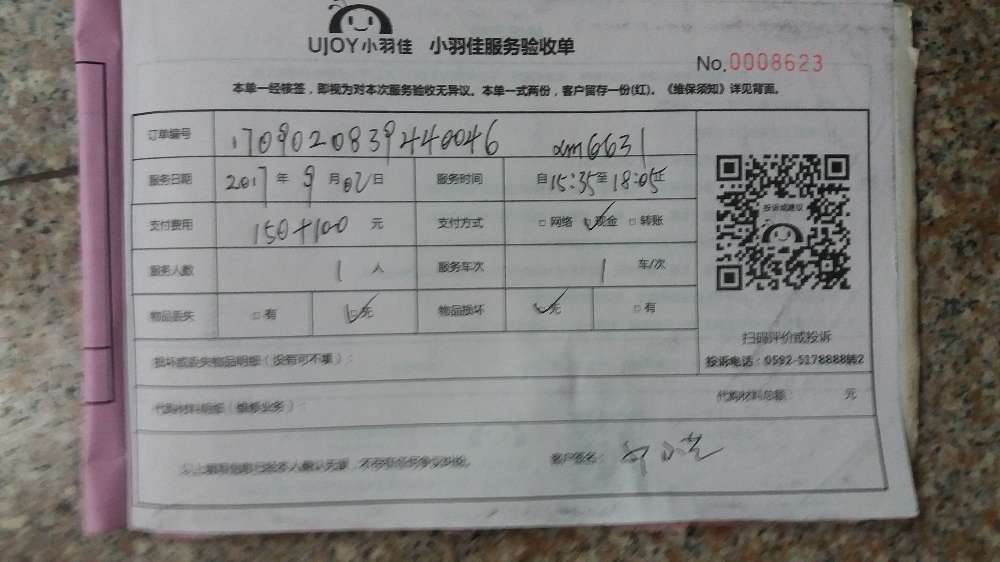 UJOY小羽佳 小羽佳服务验收单
No.0008623
本单一经核签，即视为对本次服务验收无异议。本单一式两份，客户留存一份(红)。《维保须知》详见背面。
订单编号 1709020839440046 xm6631
服务日期 2017年9月02日 服务时间 自15:35至18:05止
投诉或建议
支付费用 150+100 元 支付方式 □网络 ☑现金 □转账
服务人数 1 人 服务车次 1 车/次
物品丢失 □有 ☑无 物品损坏 ☑无 □有
扫码评价或投诉
损坏或丢失物品明细（没有可不填）：
投诉电话：0592-5178888转2
代购材料明细（维修业务）： 代购材料总额： 元
以上填写信息已经本人确认无误，不存在任何争议纠纷。 客户签名：